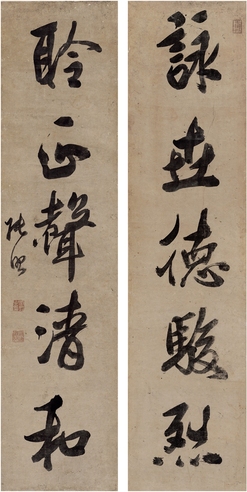 詠世德駿烈
聆正聲清和
張照